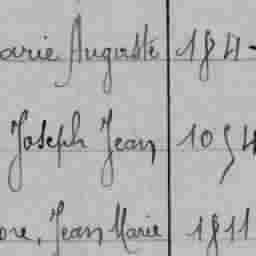 arie Auguste 184
Joseph Jean 1054
ore, Jean Marie 1811